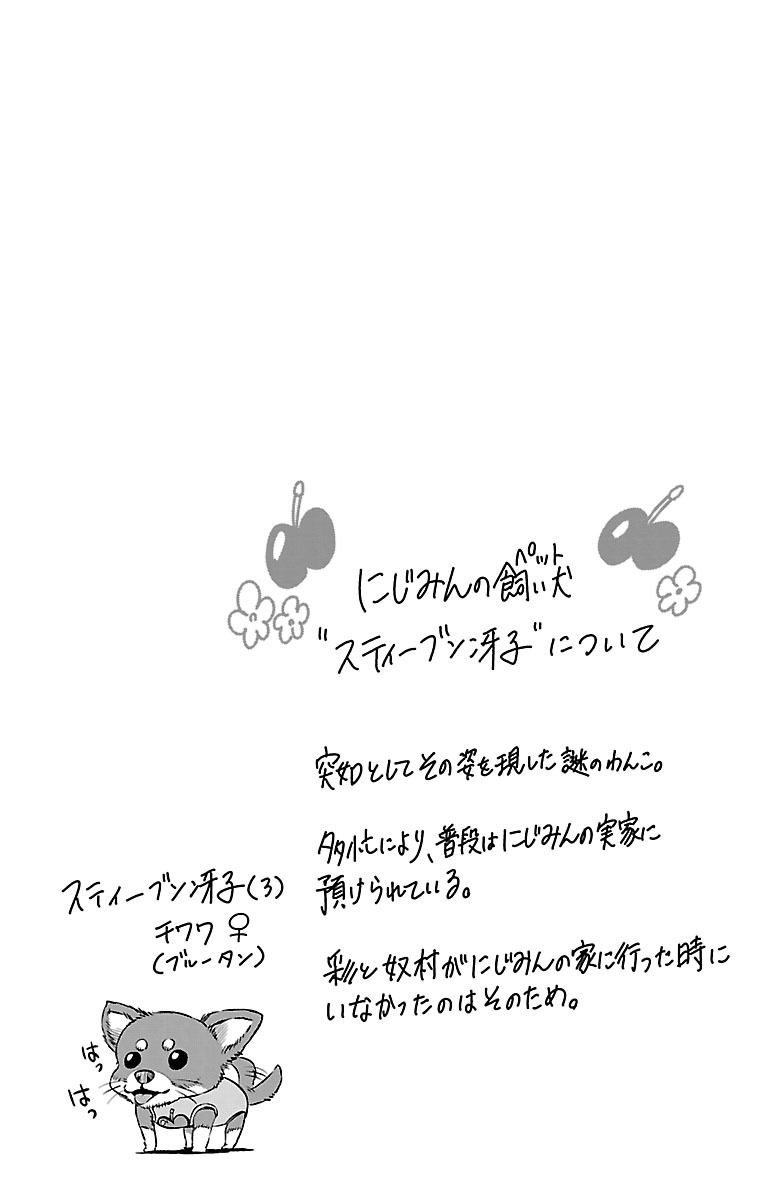 にじみんの飼い犬
ペット
"スティーブン冴子"について
突如としてその姿を現した謎のわんこ。
多忙により、普段はにじみんの実家に
預けられている。
彩と奴村がにじみんの家に行った時に
いなかったのはそのため。
スティーブン冴子(3)
チワワ♀
(ブルータン)
はっ
はっ